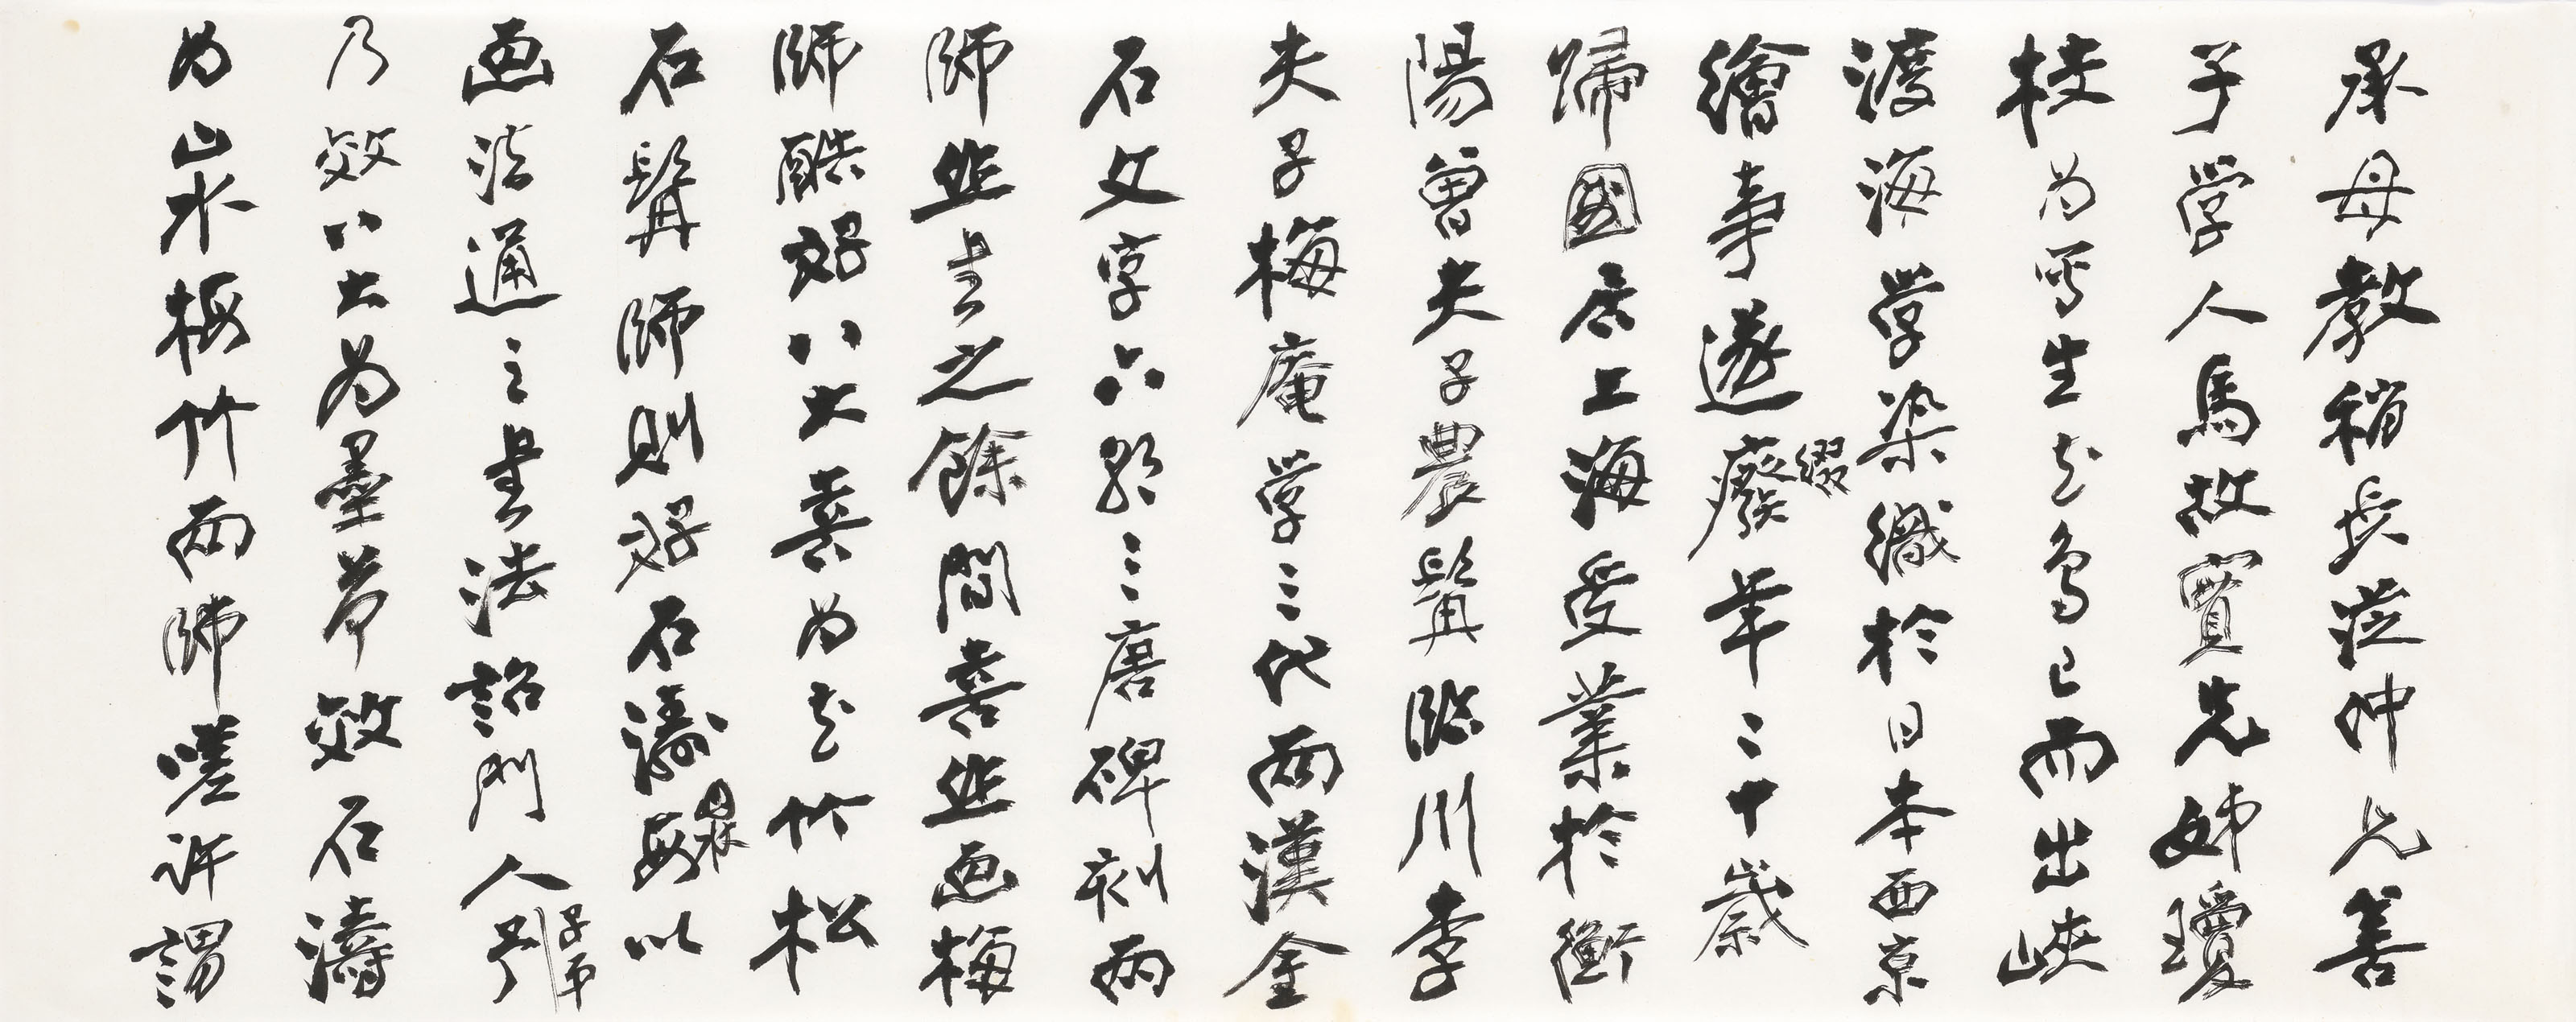 承母教稍長從仲兄善
子學人馬故實先姊瓊
枝為寫生花鳥已而出峽
渡海學染織於日本西京
繪事遂廢年二十歲
輟
歸國居上海受業於衡
陽曾夫子農髯臨川李
夫子梅庵學三代兩漢金
石文字六朝三唐碑刻兩
師作書之餘間喜作画梅
師酷好八大喜為花竹松
石髯師則好石濤每以
画法通之書法詔門人引
乃效八大為墨荷效石濤
為山水梅竹兩師嗟許謂